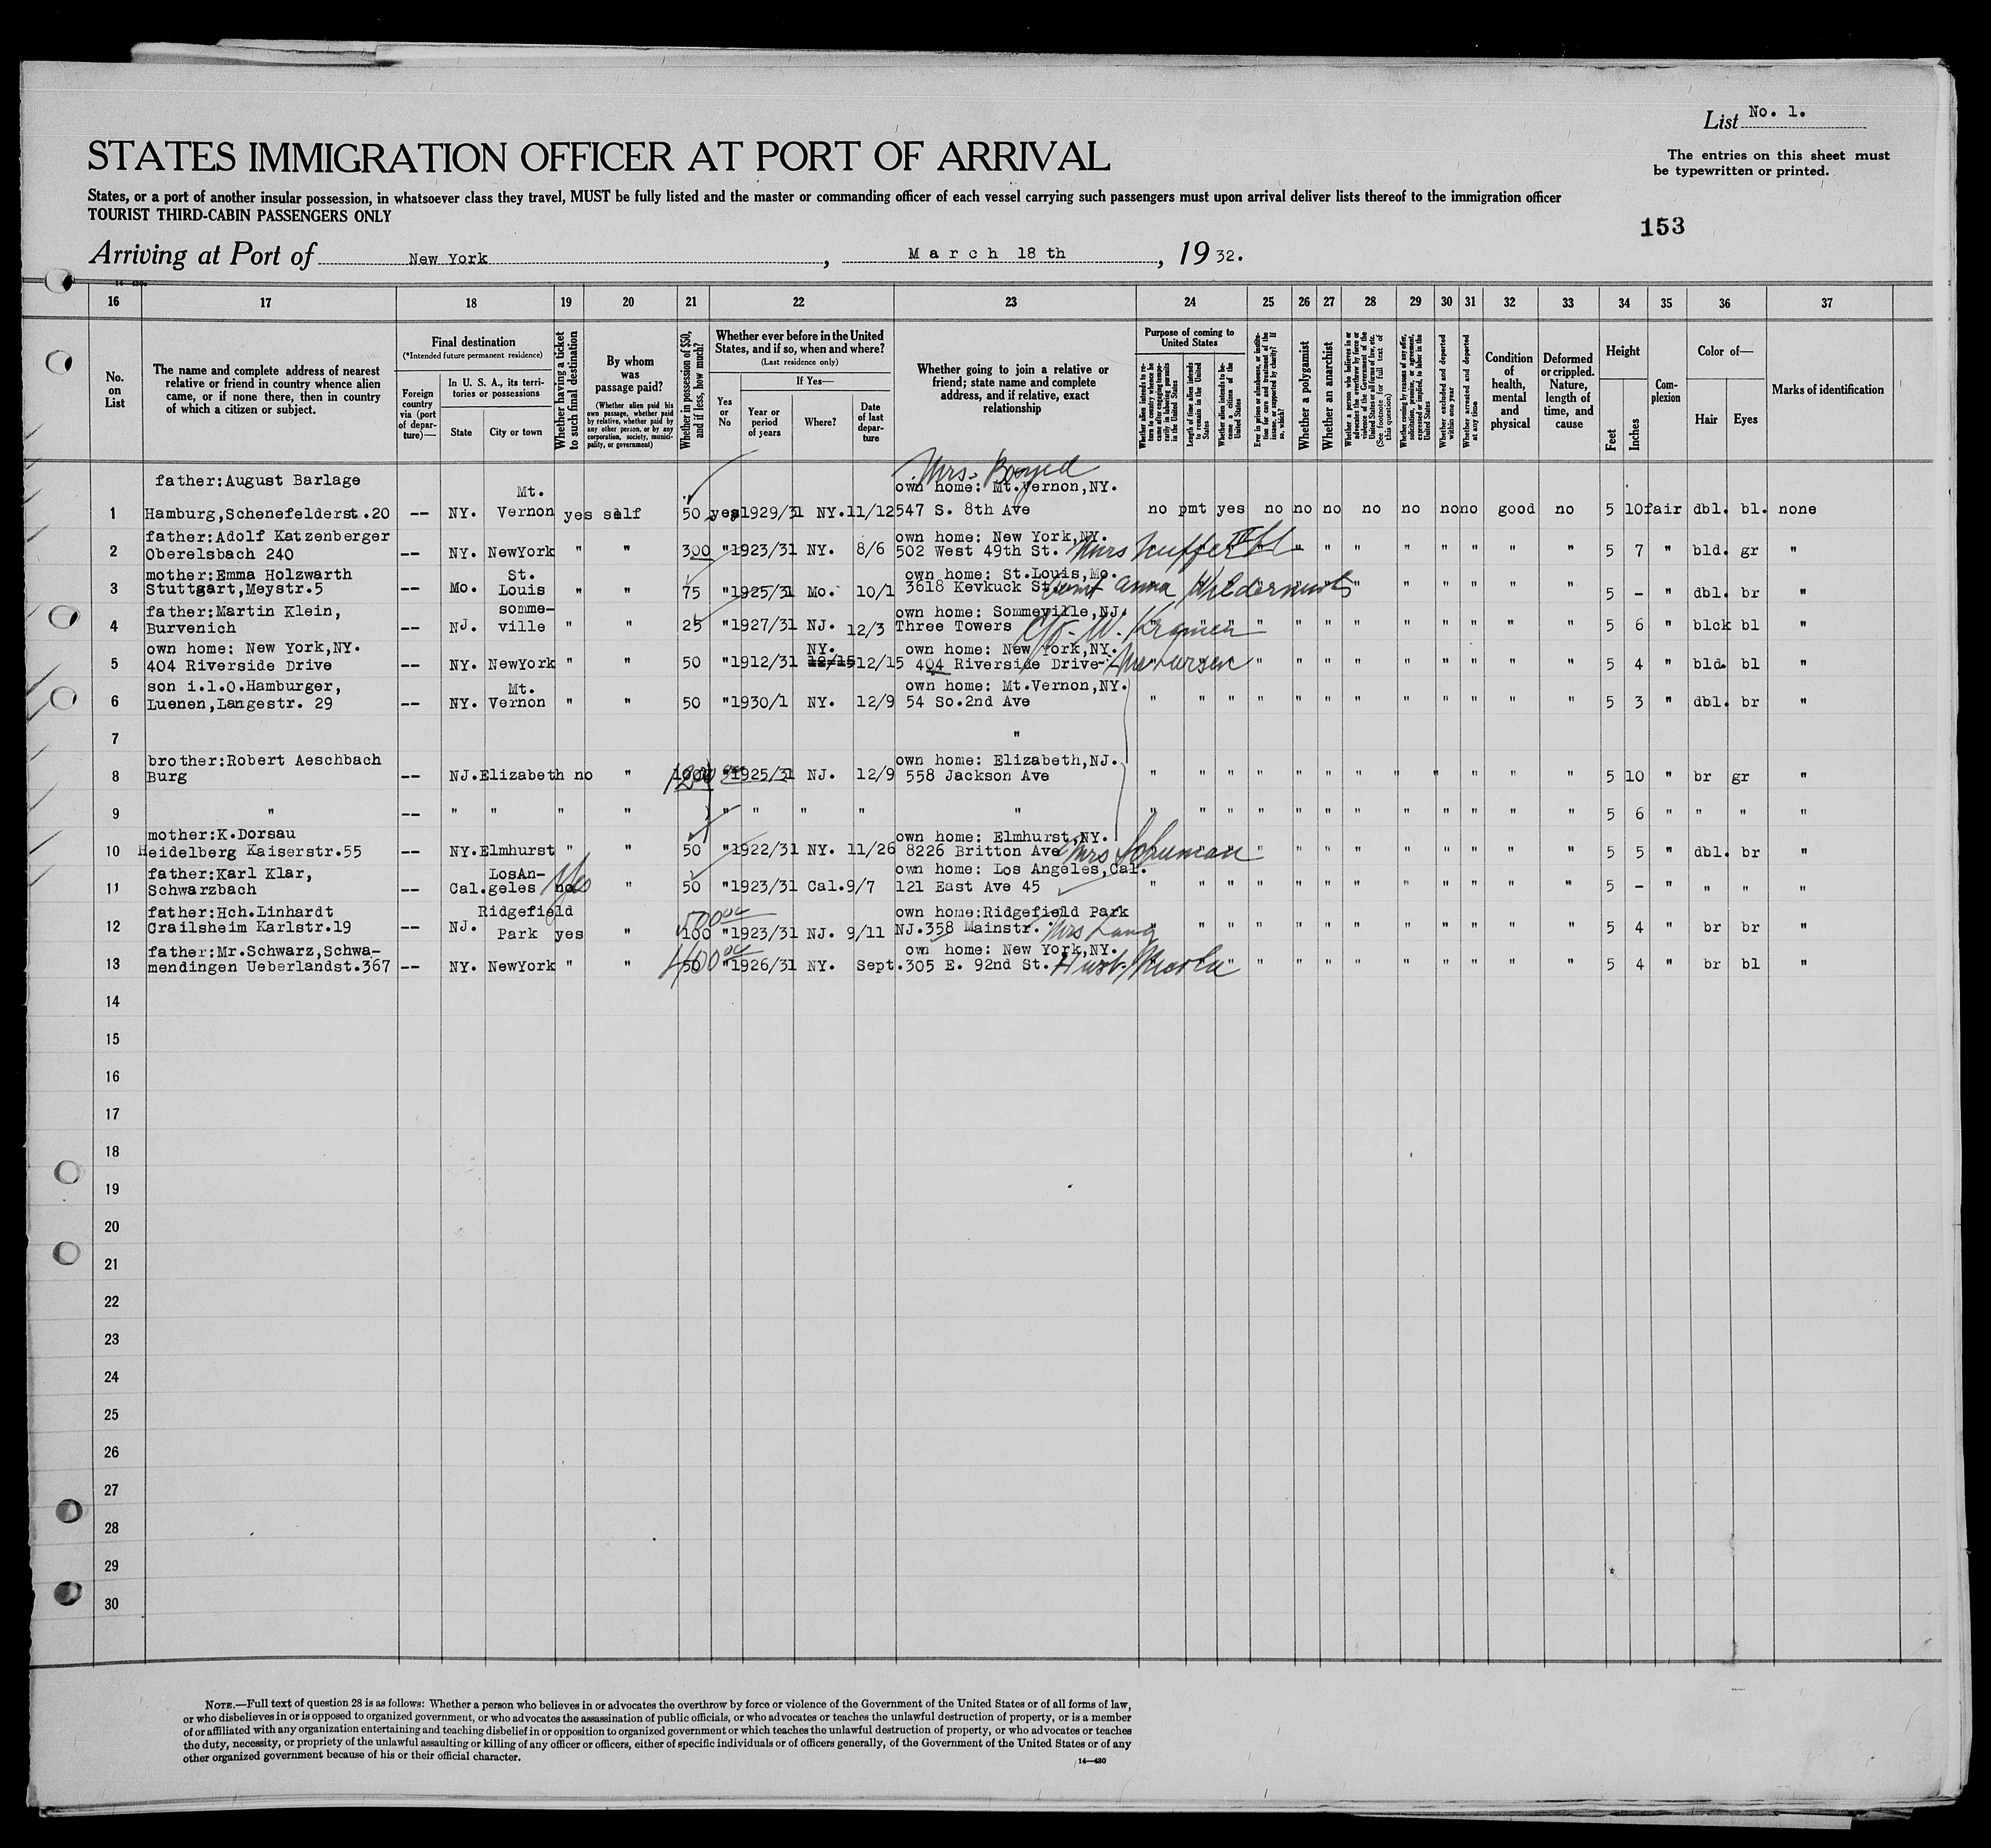 List No. 1.
STATES IMMIGRATION OFFICER AT PORT OF ARRIVAL
The entries on this sheet must
be typewritten or printed.
States, or a port of another insular possession, in whatsoever class they travel, MUST be fully listed and the master or commanding officer of each vessel carrying such passengers must upon arrival deliver lists thereof to the immigration officer
TOURIST THIRD-CABIN PASSENGERS ONLY
153
Arriving at Port of New York, March 18 th, 1932.
16 17 18 19 20 21 22 23 24 25 26 27 28 29 30 31 32 33 34 35 36 37
No. on List
The name and complete address of nearest relative or friend in country whence alien came, or if none there, then in country of which a citizen or subject.
Final destination
(*Intended future permanent residence)
Foreign country via (port of departure)—
In U. S. A., its territories or possessions
State
City or town
Whether having a ticket to such final destination
By whom was passage paid?
(Whether alien paid his own passage, whether paid by relative, whether paid by any other person, or by any corporation, society, municipality, or government)
Whether in possession of $50, and if less, how much?
Whether ever before in the United States, and if so, when and where?
(Last residence only)
Yes or No
If Yes—
Year or period of years
Where?
Date of last departure
Whether going to join a relative or friend; state name and complete address, and if relative, exact relationship
Purpose of coming to United States
Length of time alien intends to remain in the United States
Whether alien intends to become a citizen of the United States
Whether a polygamist
Whether an anarchist
Whether excluded and deported within one year
Whether arrested and deported at any time
Condition of health, mental and physical
Deformed or crippled. Nature, length of time, and cause
Height
Feet
Inches
Complexion
Color of—
Hair
Eyes
Marks of identification
Mrs.
father:August Barlage Mt. own home: Mt.Vernon,NY.
1 Hamburg,Schenefelderst.20 -- NY. Vernon yes self 50 yes 1929/31 NY. 11/12 547 S. 8th Ave no pmt yes no no no no no no no good no 5 10 fair dbl. bl. none
father:Adolf Katzenberger own home: New York,NY.
2 Oberelsbach 240 -- NY. NewYork " " 300 " 1923/31 NY. 8/6 502 West 49th St. Mrs " " " " " " " " 5 7 " bld. gr "
mother:Emma Holzwarth St. own home: St.Louis,Mo.
3 Stuttgart,Meystr.5 -- Mo. Louis " " 75 " 1925/31 Mo. 10/1 3618 Kevkuck St. aunt Anna " " " " " " 5 - " dbl. br "
father:Martin Klein, somme- own home: Sommeville,NJ.
4 Burvenich -- NJ. ville " " 25 " 1927/31 NJ. 12/3 Three Towers c/o W. Kramer " " " " " " " " " 5 6 " blck bl "
own home: New York,NY. NY. own home: New York,NY.
5 404 Riverside Drive -- NY. NewYork " " 50 " 1912/31 12/15 12/15 404 Riverside Drive " " " " " " " " " 5 4 " bld. bl "
son i.l.O.Hamburger, Mt. own home: Mt.Vernon,NY.
6 Luenen,Langestr. 29 -- NY. Vernon " " 50 " 1930/1 NY. 12/9 54 So.2nd Ave " " " " " " " " " " " " 5 3 " dbl. br "
7 "
brother:Robert Aeschbach own home: Elizabeth,NJ.
8 Burg -- NJ. Elizabeth no " " 1925/31 NJ. 12/9 558 Jackson Ave " " " " " " " " " " " " 5 10 " br gr "
9 " -- " " " " " " " " " " " " " " " " " " " " " 5 6 " " " "
mother:K.Dorsau own home: Elmhurst,NY.
10 Heidelberg Kaiserstr.55 -- NY. Elmhurst " " 50 " 1922/31 NY. 11/26 8226 Britton Ave Mrs Schuman " " " " " " " " " " 5 5 " dbl. br "
father:Karl Klar, LosAn- own home: Los Angeles,Cal.
11 Schwarzbach -- Cal. geles no Yes " 50 " 1923/31 Cal. 9/7 121 East Ave 45 " " " " " " " " " " " " 5 - " " " "
father:Hch.Linhardt Ridgefield 500 00 own home:Ridgefield Park
12 Crailsheim Karlstr.19 -- NJ. Park yes " 100 " 1923/31 NJ. 9/11 NJ.358 Mainstr. Mrs Lang " " " " " " " " " " " " 5 4 " br br "
father:Mr.Schwarz,Schwa- 400 00 own home: New York,NY.
13 mendingen Ueberlandst.367 -- NY. NewYork " " 50 " 1926/31 NY. Sept. 305 E. 92nd St. Husb. " " " " " " " " " " 5 4 " br bl "
14
15
16
17
18
19
20
21
22
23
24
25
26
27
28
29
30
NOTE.—Full text of question 28 is as follows: Whether a person who believes in or advocates the overthrow by force or violence of the Government of the United States or of all forms of law,
or who disbelieves in or is opposed to organized government, or who advocates the assassination of public officials, or who advocates or teaches the unlawful destruction of property, or is a member
of or affiliated with any organization entertaining and teaching disbelief in or opposition to organized government or which teaches the unlawful destruction of property, or who advocates or teaches
the duty, necessity, or propriety of the unlawful assaulting or killing of any officer or officers, either of specific individuals or of officers generally, of the Government of the United States or of any
other organized government because of his or their official character.
14—430